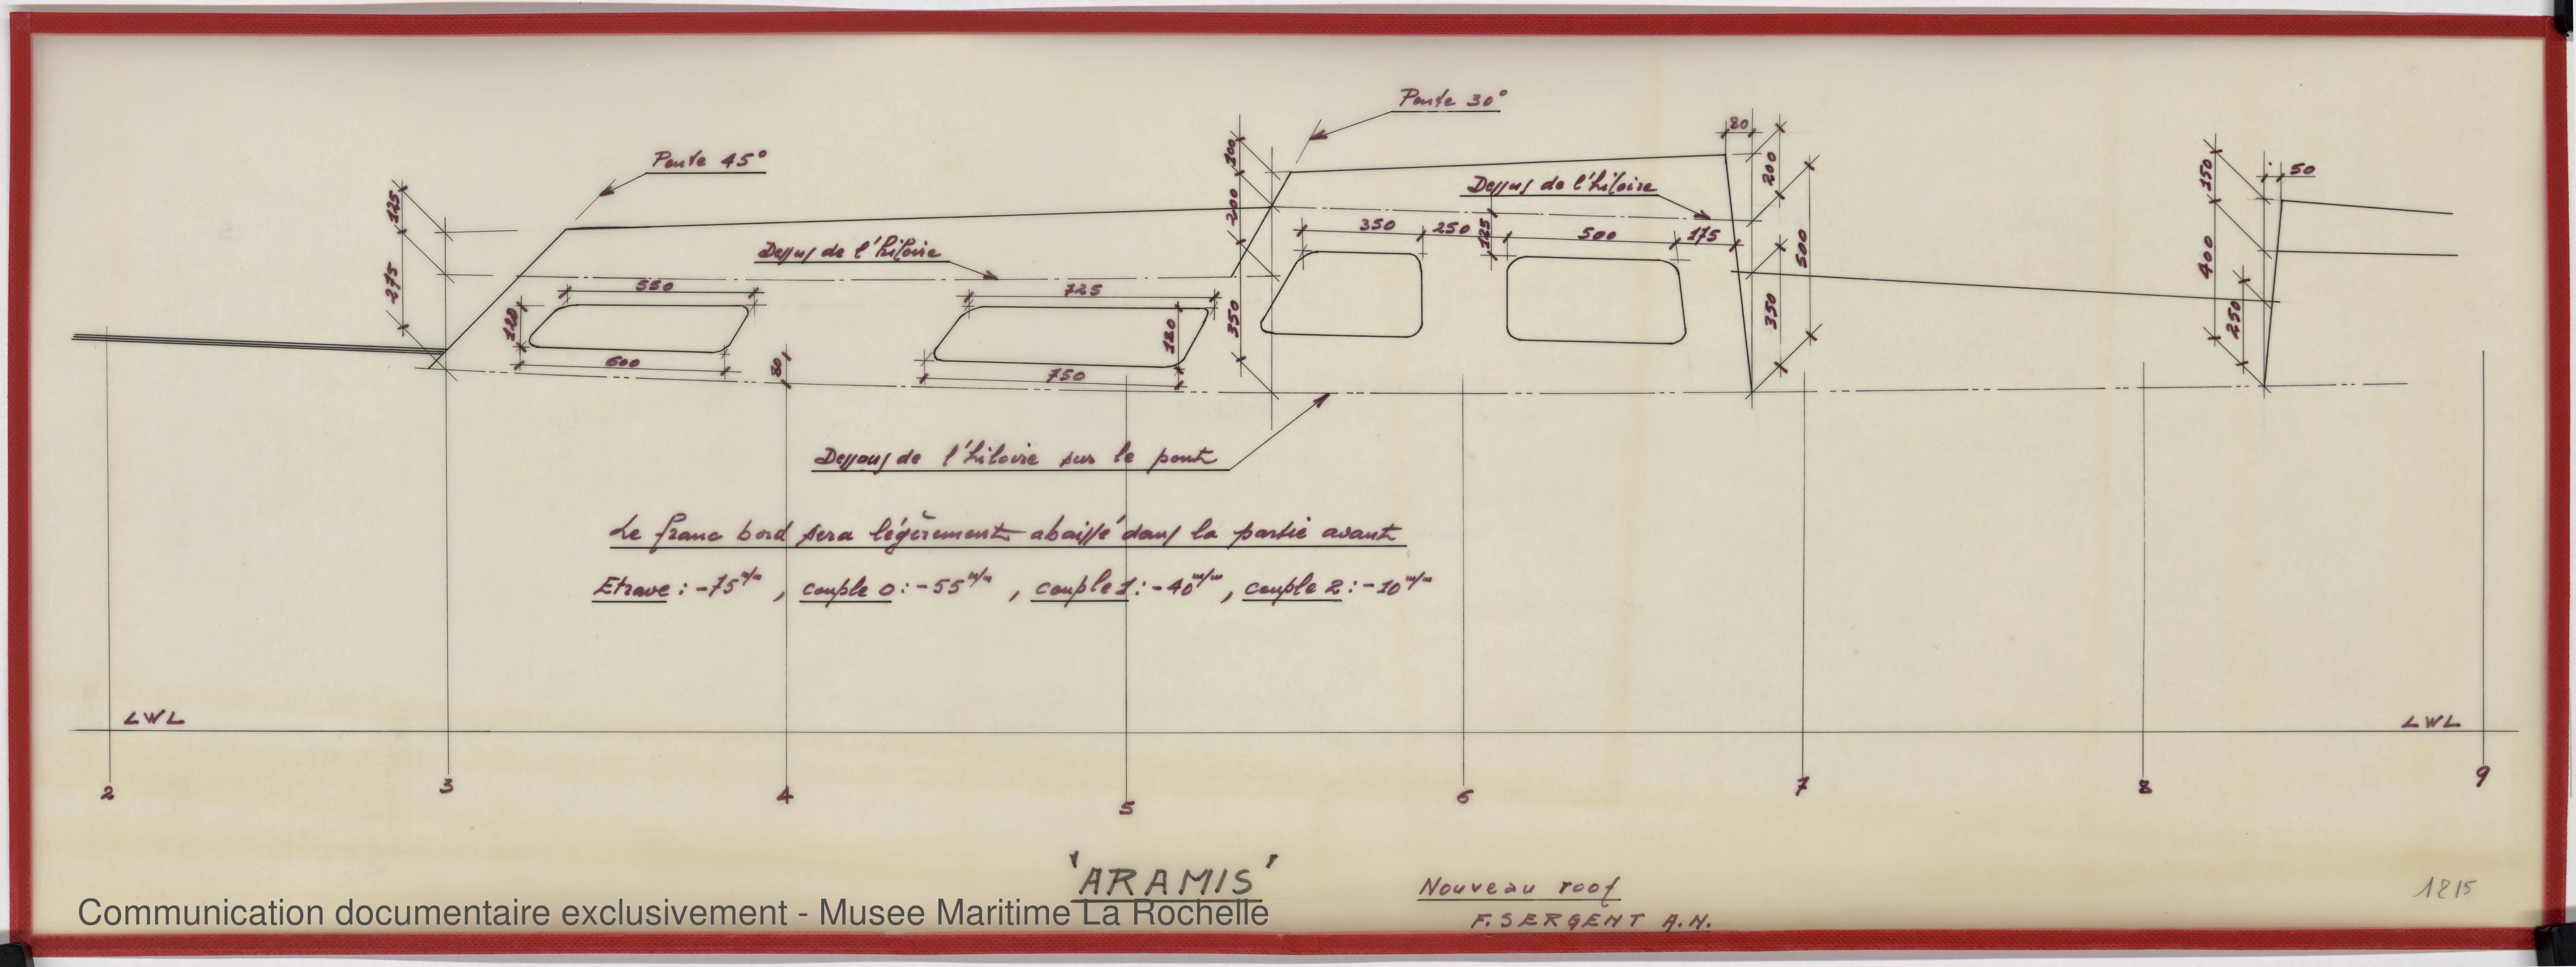 Pente 30°
Pente 45°
80
100
200
200
125
275
150
50
400
250
Dessus de l'hiloire
350
250
125
500
175
500
350
Dessus de l'hiloire
550
120
600
80
725
180
750
350
Dessous de l'hiloire sur le pont
Le franc bord sera légèrement abaissé dans la partie avant
Etrave : -75 m/m , couple 0 : -55 m/m , couple 1 : -40 m/m , couple 2 : -10 m/m
LWL
LWL
2
3
4
5
6
7
8
9
'ARAMIS'
Nouveau roof
F. SERGENT A.N.
1215
Communication documentaire exclusivement - Musee Maritime La Rochelle